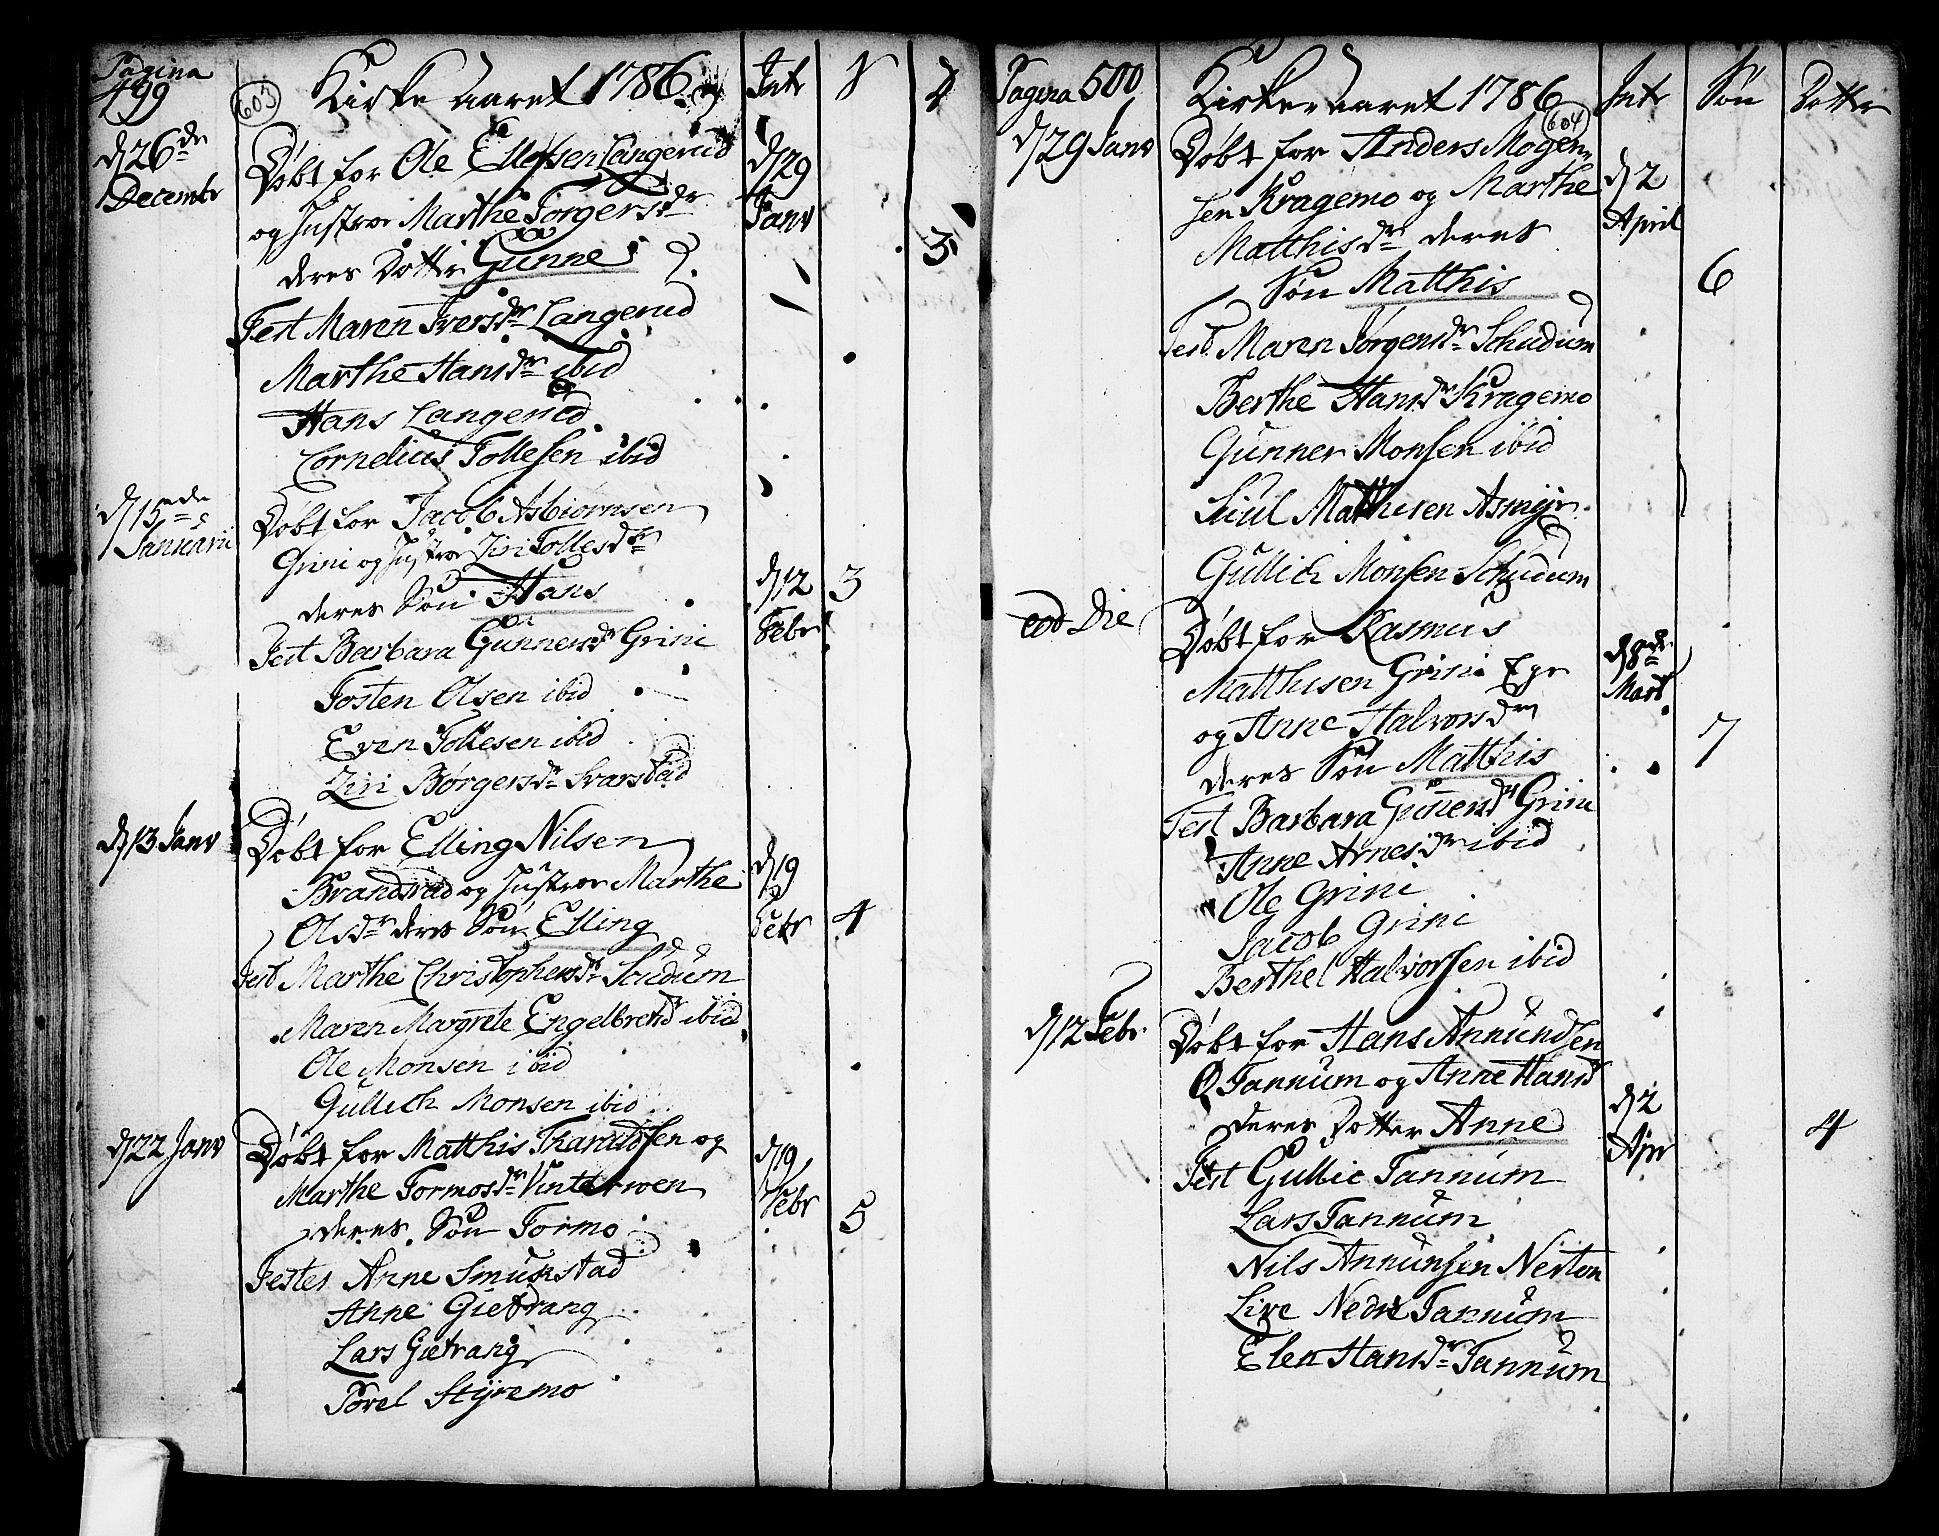 Pagina
499
603
Kirke Aaret 1786.
Intr
S
D
d 26de
Decembr
Døbt for Ole Ellefsen Langerud
og Hustroe Marthe Torgersdr
deres Dotter Gunne
d 29
Janv
3
Test Maren Iversdr Langerud
Marthe Hansdr ibid
Hans Langerud
Cornelius Tollefsen ibid
d 15ede
Januarii
Døbt for Jacob Asbiørnsen
Grini og Hustroe Ziri Tollesdr
deres Søn Hans
d 12
Febr
3
Test Barbara Gunnersdr Grini
Tosten Olsen ibid
Even Tollesen ibid
Ziri Børgersdr Svarstad
d 13 Janv
Døbt for Elling Nilsen
Brandsrud og Hustroe Marthe
Olsdr deres Søn Elling
d 19
Febr
4
Test Marthe Christophersdr Schudum
Maren Margrete Engelbretsd ibid
Ole Monsen ibid
Gullich Monsen ibid
d 22 Janv
Døbt for Matthis Trandsen og
Marthe Tormosdr Vinterwen
deres Søn Tormo
d 19
Febr
5
Testes Arne Smukstad
Anne Gietrang
Lars Gietrang
Torel Styremo
Pagina 500
Kirke Aaret 1786
604
Intr
Søn
Dotter
d 29 Janv
Døbt for Anders Mogen-
sen Kragemo og Marthe
Matthisdr deres
Søn Matthis
d 2
April
6
Test. Maren Jørgensdr Schudum
Berthe Hansdr Kragemo
Gunner Monsen ibid
Siul Mathisen Asmyr
Gullich Monsen Schudum
eod Die
Døbt for Rasmus
Matthisen Grini Eye
og Anne Halvorsdr
deres Søn Matthis
d 8de
Mart
7
Test Barbara Gunnersdr Grini
Anne Arnesdr ibid
Ole Grini
Jacob Grini
Berthel Halvorsen ibid
d 12 Febr
Døbt for Hans Annundsen
Ø Tannum og Anne Hansd
deres Dotter Anne
d 2
Apr
4
Test Gullic Tannum
Lars Tannum
Nils Annunsen Nerton
Live Nedre Tannum
Elen Hansdr Tannum